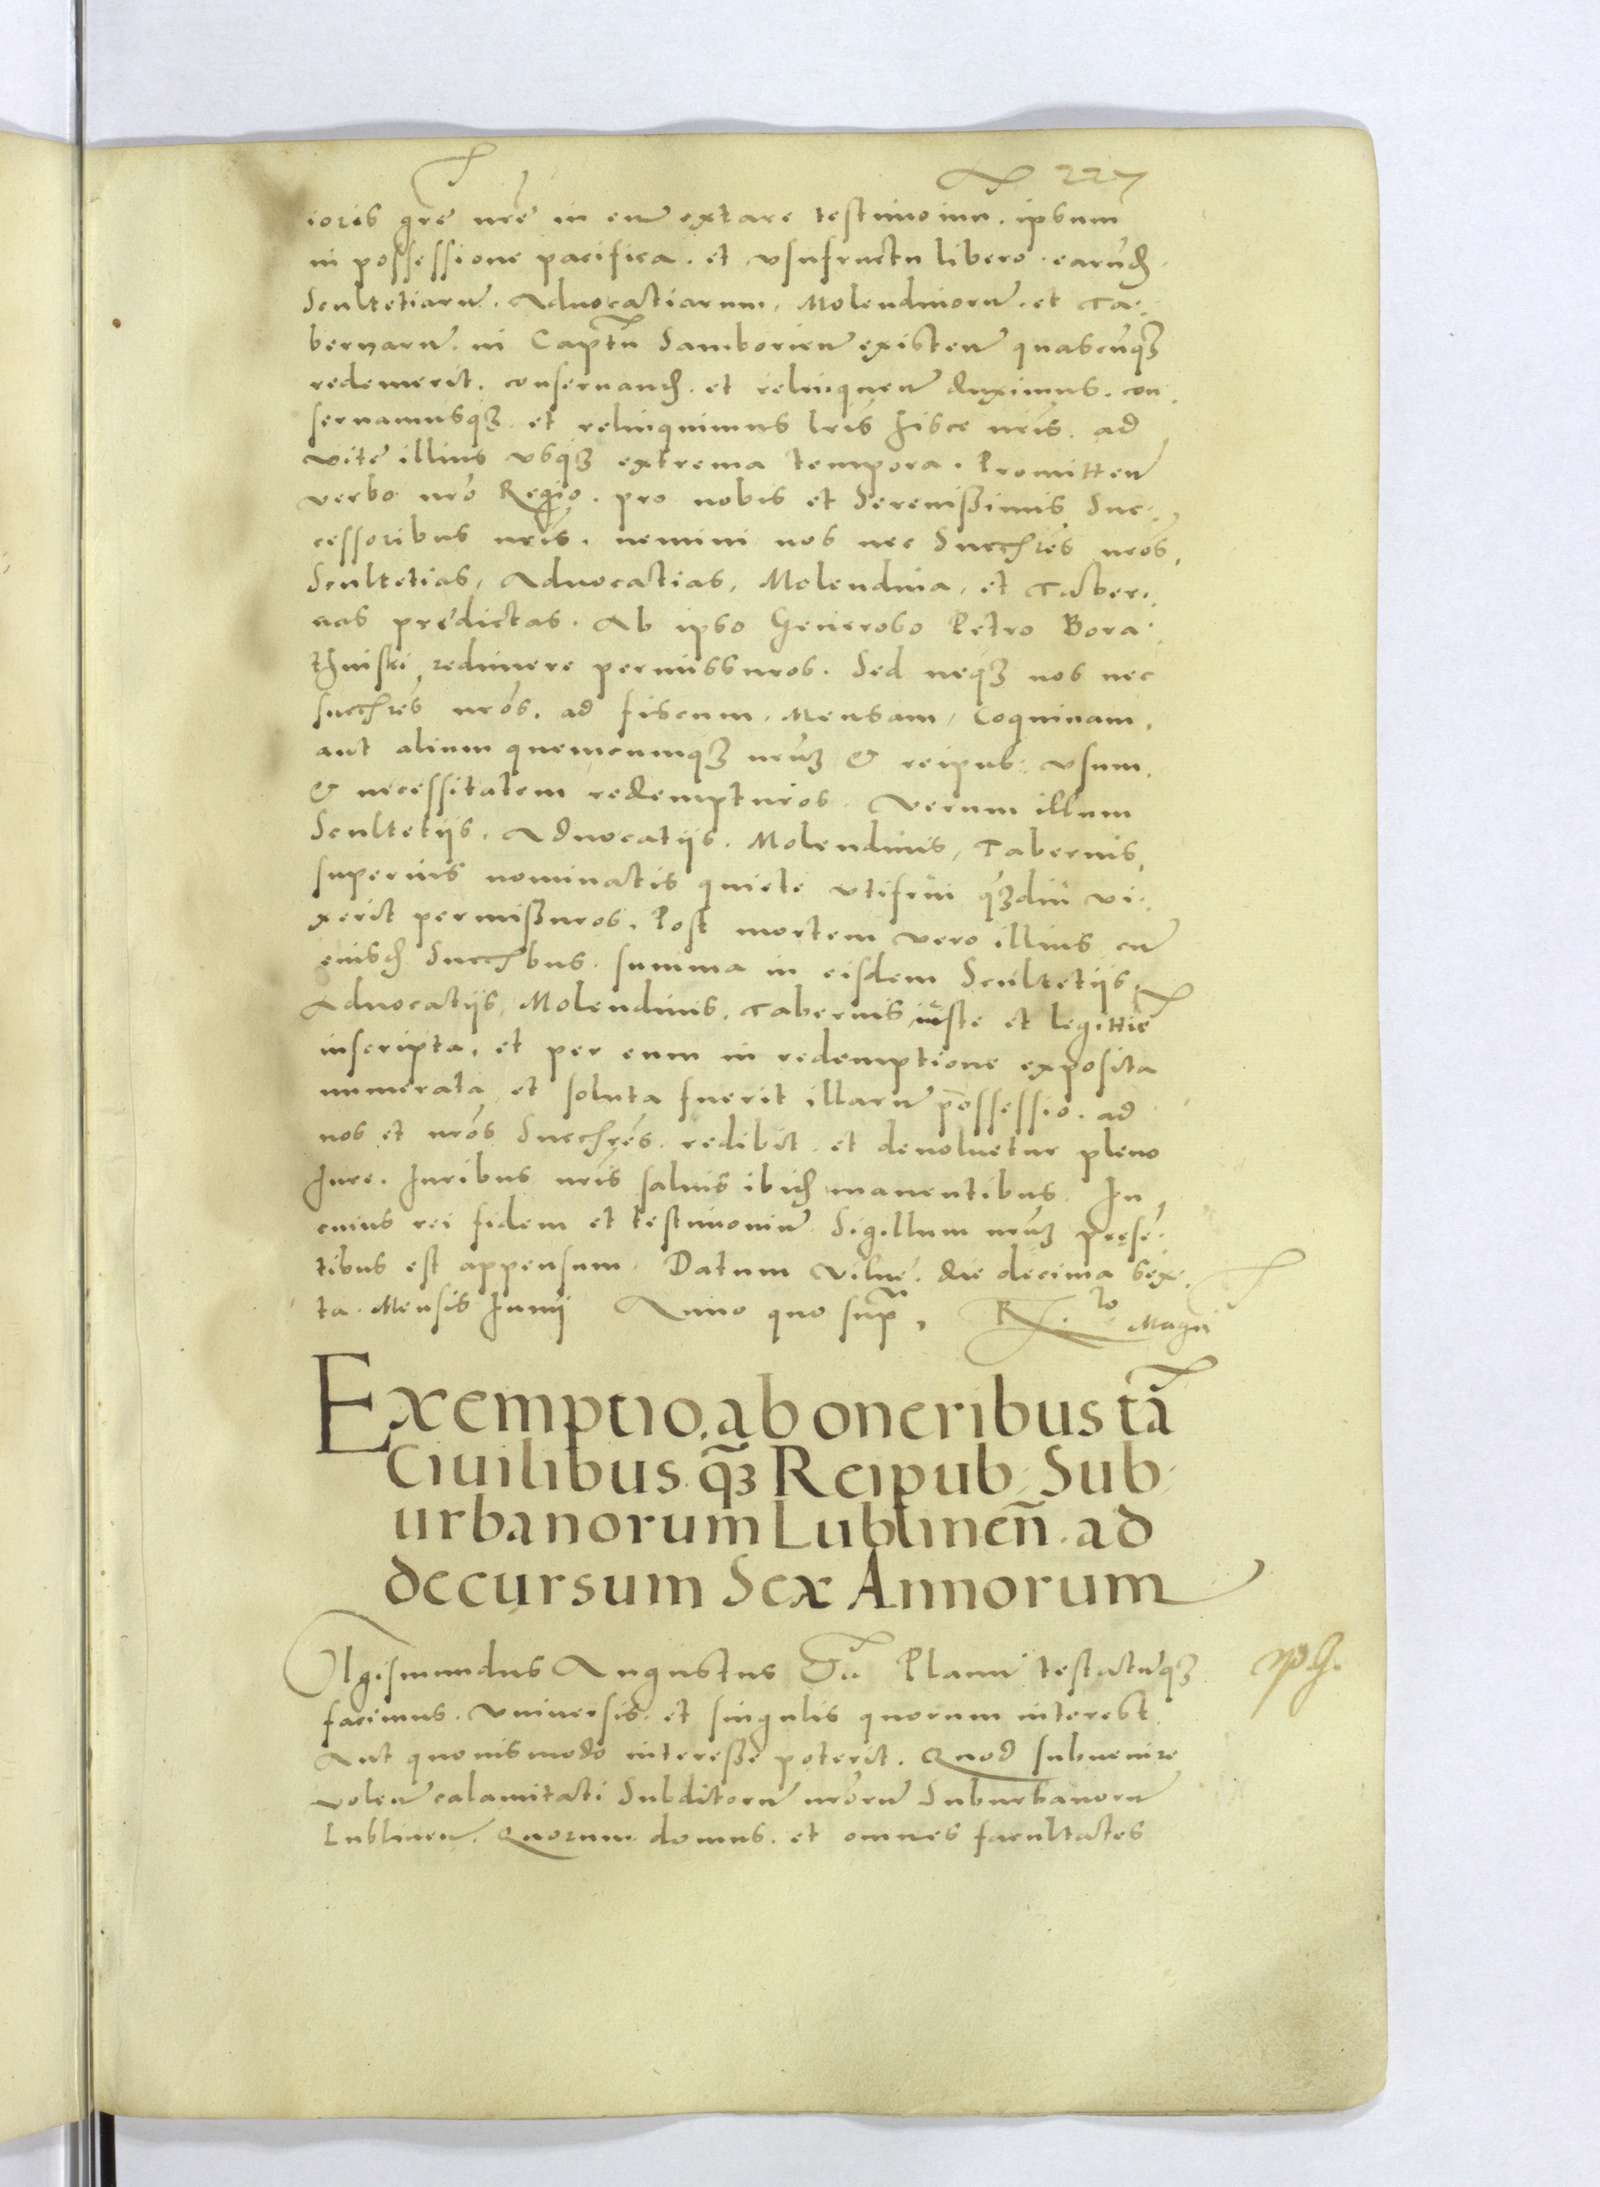 227
ioris grẽ nrẽ in eum extare testimoium. ipsum
in possessione pacifica. et vsufructu libero. earund.
Scultetiarum. Aduocatiarum, Molendinorum. et Ta:
bernarum. in Captũ Samborien existen quascunqʒ
redemerit. conseruand. et relinquen duximus. con
seruamusqʒ. et relinquimus lris hisce nris. ad
vite illius vsqʒ extrema tempora. Promitten
verbo nrõ Regio. pro nobis et Serenißimis Suc:
cessoribus nris. nemini nos nec Succhres nros,
Scultetias, Aduocatias, Molendina, et Taber:
nas predictas. Ab ipso Generoso Petro Bora:
thinski redimere permissuros. Sed neqʒ nos nec
succhres nros. ad fiscum, Mensam, Coquinam,
aut alium quemcumqʒ nrũʒ & reipub: vsum.
& necessitatem redempturos. Verum illum
Scultetijs, Aduocatijs. Molendinis, Tabernis,
superius nominatis quiete vtifrui qʒdiu vi:
xerit permißuros. Post mortem vero illius cum
eiusd Succhbus. summa in eisdem Scultetijs,
Aduocatijs, Molendinis, Tabernis iuste et legittie
inscripta, et per eum in redemptione exposita
numerata et soluta fuerit illarum possessio. ad
nos et nros Succhres. redibit. et deuoluetur pleno
Jure. Juribus nris saluis ibid manentibus. In
cuius rei fidem et testimonium Sigillum nrũʒ prese
tibus est appensum. Datum Vilne. die decima sex
ta. Mensis Junij Anno quo sup,
Exemptio. ab oneribus tã
Ciuilibus. qʒ Reipub: Sub:
urbanorum Lublineñ. ad
decursum Sex Annorum
Sigismundus Augustus Planum testatumqʒ
facimus. Vniuersis. et singulis quorum interest
Aut quouismodo intereße poterit. Quod subuenire
volen calamitati Subditorum nrorum Suburbanorum
Lublinen. Quorum domus. et omnes facultates